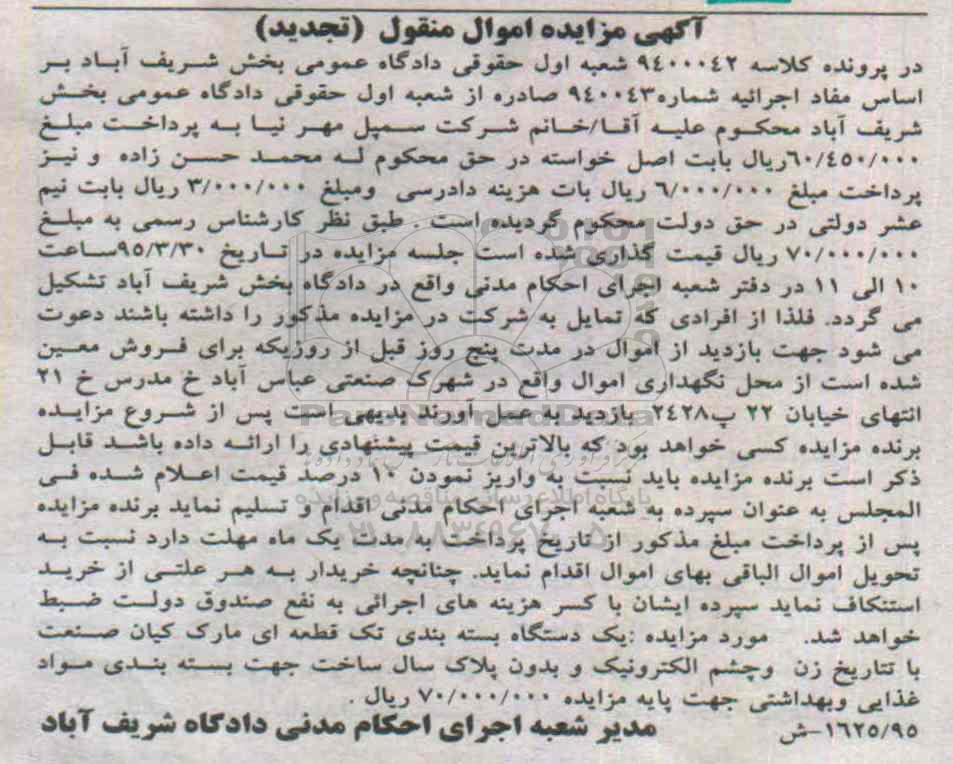 آگهی مزایده اموال منقول (تجدید)
در پرونده کلاسه ۹۴۰۰۰۴۲ شعبه اول حقوقی دادگاه عمومی بخش شریف آباد بر
اساس مفاد اجرائیه شماره۹۴۰۰۴۳ صادره از شعبه اول حقوقی دادگاه عمومی بخش
شریف آباد محکوم علیه آقا/خانم شرکت سمپل مهر نیا به پرداخت مبلغ
۶۰/۴۵۰/۰۰۰ریال بابت اصل خواسته در حق محکوم له محمد حسن زاده و نیز
پرداخت مبلغ ۶/۰۰۰/۰۰۰ ریال بات هزینه دادرسی ومبلغ ۳/۰۰۰/۰۰۰ ریال بابت نیم
عشر دولتی در حق دولت محکوم گردیده است . طبق نظر کارشناس رسمی به مبلغ
۷۰/۰۰۰/۰۰۰ ریال قیمت گذاری شده است جلسه مزایده در تاریخ ۹۵/۳/۳۰ساعت
۱۰ الی ۱۱ در دفتر شعبه اجرای احکام مدنی واقع در دادگاه بخش شریف آباد تشکیل
می گردد. فلذا از افرادی که تمایل به شرکت در مزایده مذکور را داشته باشند دعوت
می شود جهت بازدید از اموال در مدت پنج روز قبل از روزیکه برای فروش معین
شده است از محل نگهداری اموال واقع در شهرک صنعتی عباس آباد خ مدرس خ ۲۱
انتهای خیابان ۲۲ پ۲۴۲۸ بازدید به عمل آورند بدیهی است پس از شروع مزایده
برنده مزایده کسی خواهد بود که بالاترین قیمت پیشنهادی را ارائه داده باشد قابل
ذکر است برنده مزایده باید نسبت به واریز نمودن ۱۰ درصد قیمت اعلام شده فی
المجلس به عنوان سپرده به شعبه اجرای احکام مدنی اقدام و تسلیم نماید برنده مزایده
پس از پرداخت مبلغ مذکور از تاریخ پرداخت به مدت یک ماه مهلت دارد نسبت به
تحویل اموال الباقی بهای اموال اقدام نماید. چنانچه خریدار به هر علتی از خرید
استنکاف نماید سپرده ایشان با کسر هزینه های اجرائی به نفع صندوق دولت ضبط
خواهد شد. مورد مزایده :یک دستگاه بسته بندی تک قطعه ای مارک کیان صنعت
با تتاریخ زن وچشم الکترونیک و بدون پلاک سال ساخت جهت بسته بندی مواد
غذایی وبهداشتی جهت پایه مزایده ۷۰/۰۰۰/۰۰۰ ریال .
۱۶۲۵/۹۵-ش مدیر شعبه اجرای احکام مدنی دادگاه شریف آباد
ParsNamadData
پایگاه اطلاع رسانی مناقصه و مزایده